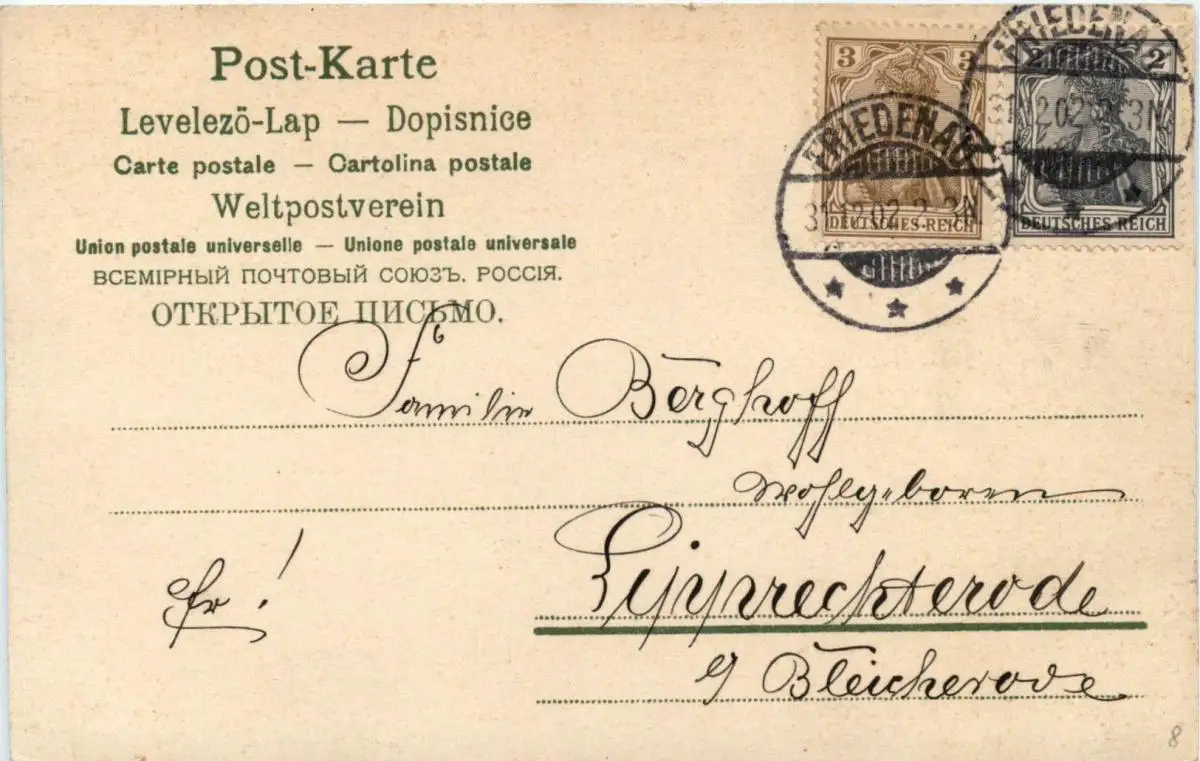 Post-Karte
Levelezö-Lap — Dopisnice
Carte postale — Cartolina postale
Weltpostverein
Union postale universelle — Unione postale universale
ВСЕМІРНЫЙ ПОЧТОВЫЙ СОЮЗЪ. РОССІЯ.
ОТКРЫТОЕ ПИСЬМО.
3 3
DEUTSCHES REICH
2 2
DEUTSCHES REICH
FRIEDENAU
31.12.02 2-3N
FRIEDENAU
31.12.02 2-3N
Familie Berghoff
Wohlgeboren
Lipprechterode
Fr!
Bleicherode
8